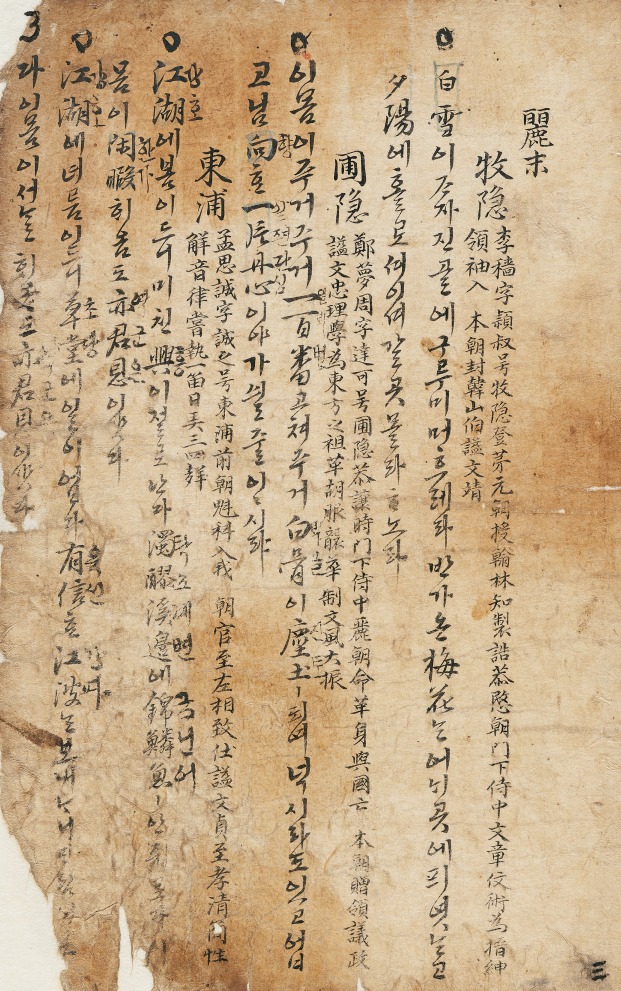 麗末
牧隐 李穡字頴叔号牧隐登茅元朝授翰林知製誥恭愍朝門下侍中文章伎術為搢紳
領袖入 本朝封韓山伯謚文靖
白雪이 ᄌᆞ자진 골에 구루미 머흐레라 반가온 梅花ᄂᆞᆫ 어ᄂᆡ 곳에 픠엿ᄂᆞᆫ고
夕陽에 홀로 셔이셔 갈 곳 몰라 ᄒᆞ노라
圃隐 鄭夢周字達可号圃隐恭讓時門下侍中麗朝命革身與國亡 本朝贈領議政
謚文忠理學為東方之祖革胡服襲華制文風大振
이 몸이 주거주거 一百番 고쳐 주거 白骨이 塵土ㅣ 되여 넉시라도 잇고 업
고 님 向ᄒᆞᆫ 一片丹心이야 가싈 줄이 이시랴
東浦 孟思誠字誠之号東浦前朝魁科入我 朝官至左相致仕謚文貞至孝清簡性
解音律嘗執一笛日弄三四聲
江湖에 봄이 드니 미친 興이 절로 난다 濁醪溪邊에 錦鱗魚ㅣ 안쥐로다 이
몸이 閑暇ᄒᆡ옴도 亦君恩이샷다
江湖에 녀름이 드니 草堂에 일이 업다 有信ᄒᆞᆫ 江波ᄂᆞᆫ 보내ᄂᆞ니
다 이 몸이 서ᄂᆞᆯᄒᆡ옴도 亦君恩이샷다
三